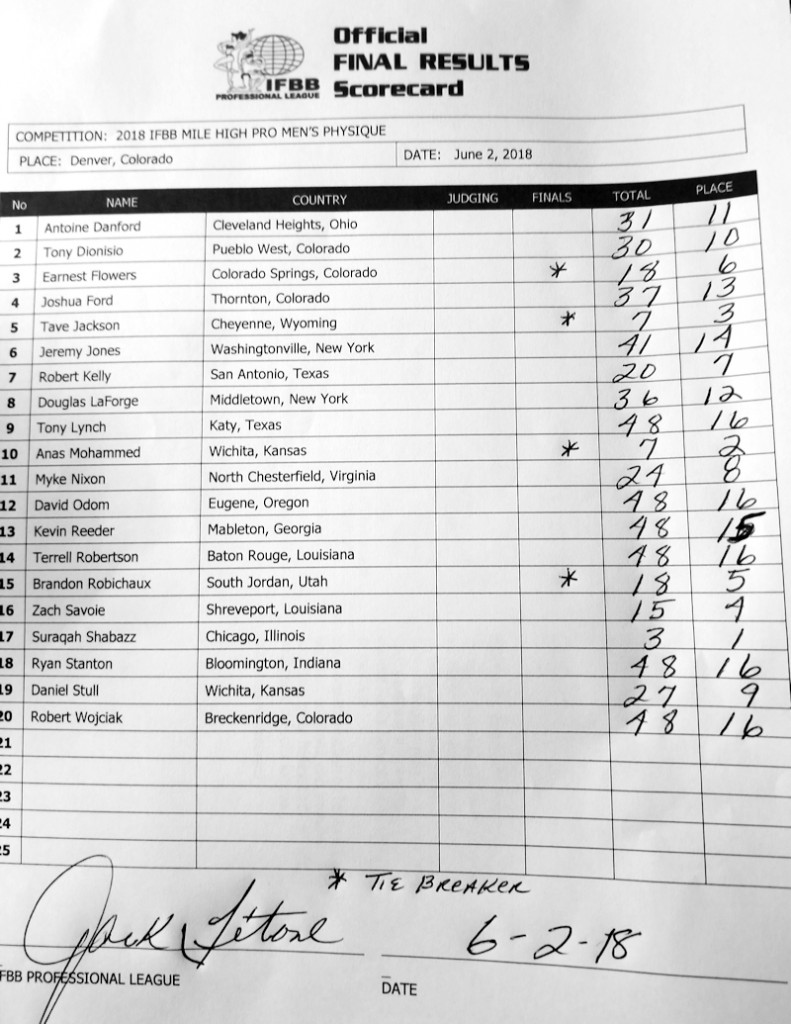 Official
FINAL RESULTS
Scorecard
IFBB
PROFESSIONAL LEAGUE
COMPETITION: 2018 IFBB MILE HIGH PRO MEN'S PHYSIQUE
PLACE: Denver, Colorado DATE: June 2, 2018
No NAME COUNTRY JUDGING FINALS TOTAL PLACE
1 Antoine Danford Cleveland Heights, Ohio 31 11
2 Tony Dionisio Pueblo West, Colorado 30 10
3 Earnest Flowers Colorado Springs, Colorado * 18 6
4 Joshua Ford Thornton, Colorado 37 13
5 Tave Jackson Cheyenne, Wyoming * 7 3
6 Jeremy Jones Washingtonville, New York 41 14
7 Robert Kelly San Antonio, Texas 20 7
8 Douglas LaForge Middletown, New York 36 12
9 Tony Lynch Katy, Texas 48 16
10 Anas Mohammed Wichita, Kansas * 7 2
11 Myke Nixon North Chesterfield, Virginia 24 8
12 David Odom Eugene, Oregon 48 16
13 Kevin Reeder Mableton, Georgia 48 15
14 Terrell Robertson Baton Rouge, Louisiana 48 16
15 Brandon Robichaux South Jordan, Utah * 18 5
16 Zach Savoie Shreveport, Louisiana 15 4
17 Suraqah Shabazz Chicago, Illinois 3 1
18 Ryan Stanton Bloomington, Indiana 48 16
19 Daniel Stull Wichita, Kansas 27 9
20 Robert Wojciak Breckenridge, Colorado 48 16
21
22
23
24
25
* TIE BREAKER
Jack 6-2-18
FBB PROFESSIONAL LEAGUE DATE